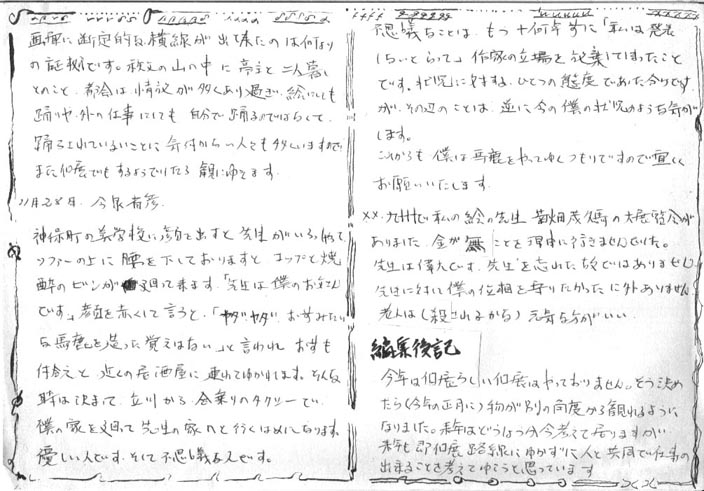 画面に断定的な横線が出て来たのは何よりの
の証拠です。秩父の山の中に亭主と二人暮し
とのこと、都会は情報が多くあり過ぎ、絵にしも
踊りや、外の仕事にしても自分で踊るのではなくて、
踊らされていることに気付からい人とも多くいますので
また何度でもするようでしたら観にゆきます。
11月28日. 今泉省彦.
神保町の美学校に顔を出すと先生がいる。何って
ソファーの上に腰を下しておりますとコップと焼
酎のビンが廻って来ます。「先生は僕のお父さん
です。」顔を赤くして言うと、「ヤダヤダ お前みたい
な馬鹿を造った覚えはない」と言われ
付合えと近くの居酒屋に連れてゆかれます。そんな
時は決まって、立川から合乗りのタクシーで、
僕の家を廻って先生の家へと行くはめになります。
優しい人です。そして不思議な人です。
思議なことは、もう十何年前に「私は思想
しないとらって」作家の立場を放棄してしまったこと
です。状況に対する、ひとつの態度であった今りです
が、その辺のことは、逆に今の僕の状況のような気が
します。
これからも僕は馬鹿をやってゆくつもりですので宜しく
お願いいたします。
××.九州で私の絵の先生 菊畑茂久馬の大展覧会が
ありました。金が無いことを理由に行きませんでした。
先生は偉大です。先生を忘れた故ではありません
先生に対して僕の位相を守りたかったに外ありません
老人は(殺されるから)元気な方がいい.
編集後記
今年は個展らしい個展はやっておりません。そう決め
たら(今年の正月に)物が別の角度から観れるように
なりました。来年はどうなうか今考えて居りますが
来年も即個展路線にゆかずに人と共同で仕事の
出来ることを考えてゆこうと思っています
××